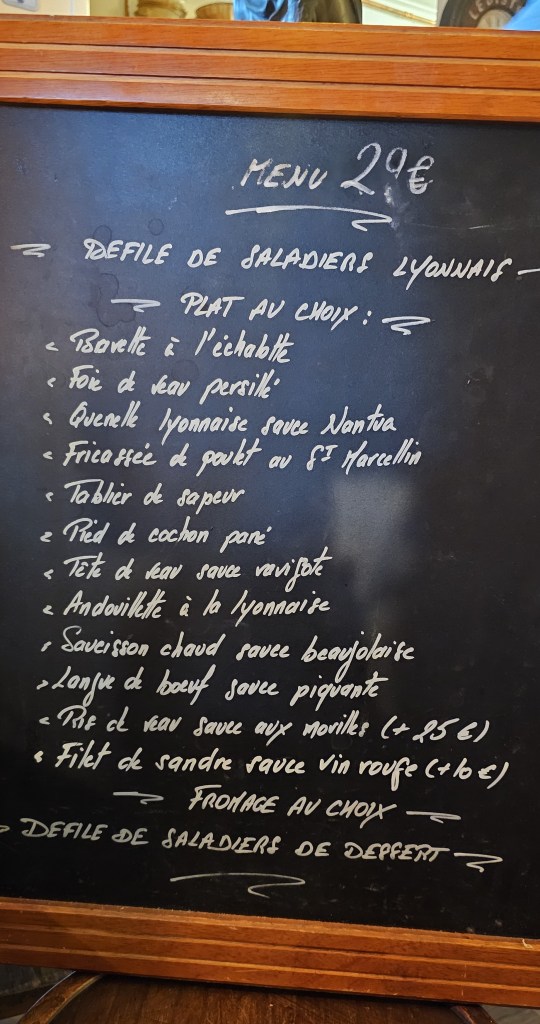 MENU 29€
DEFILE DE SALADIERS LYONNAIS
PLAT AU CHOIX :
Bavette à l'échalotte
Foie de veau persillé
Quenelle lyonnaise sauce Nantua
Fricassée de poulet au St Marcellin
Tablier de sapeur
Pied de cochon pané
Tête de veau sauce ravigote
Andouillette à la lyonnaise
Saucisson chaud sauce beaujolaise
Langue de boeuf sauce piquante
Ris de veau sauce aux morilles (+ 25 €)
Filet de sandre sauce vin rouge (+10 €)
FROMAGE AU CHOIX
DEFILE DE SALADIERS DE DESSERT